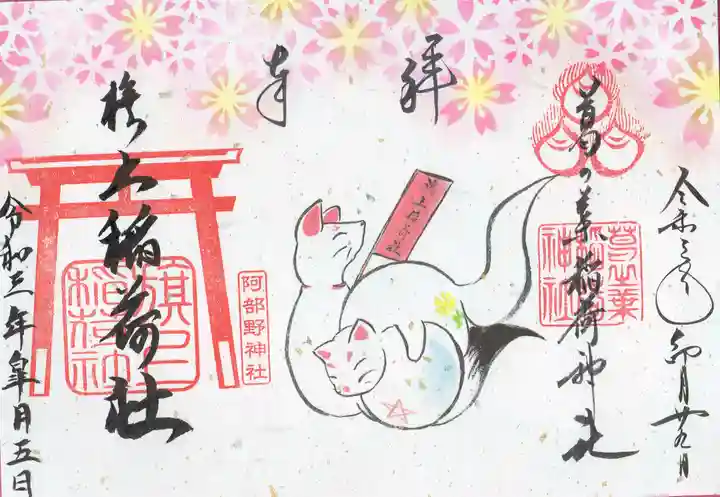 令和三
卯月廿九日
葛の葉稲荷神社
葛之葉
神社
奉拝
阿部野神社
旗上稲荷社
旗上
稲荷社
令和三年皐月五日